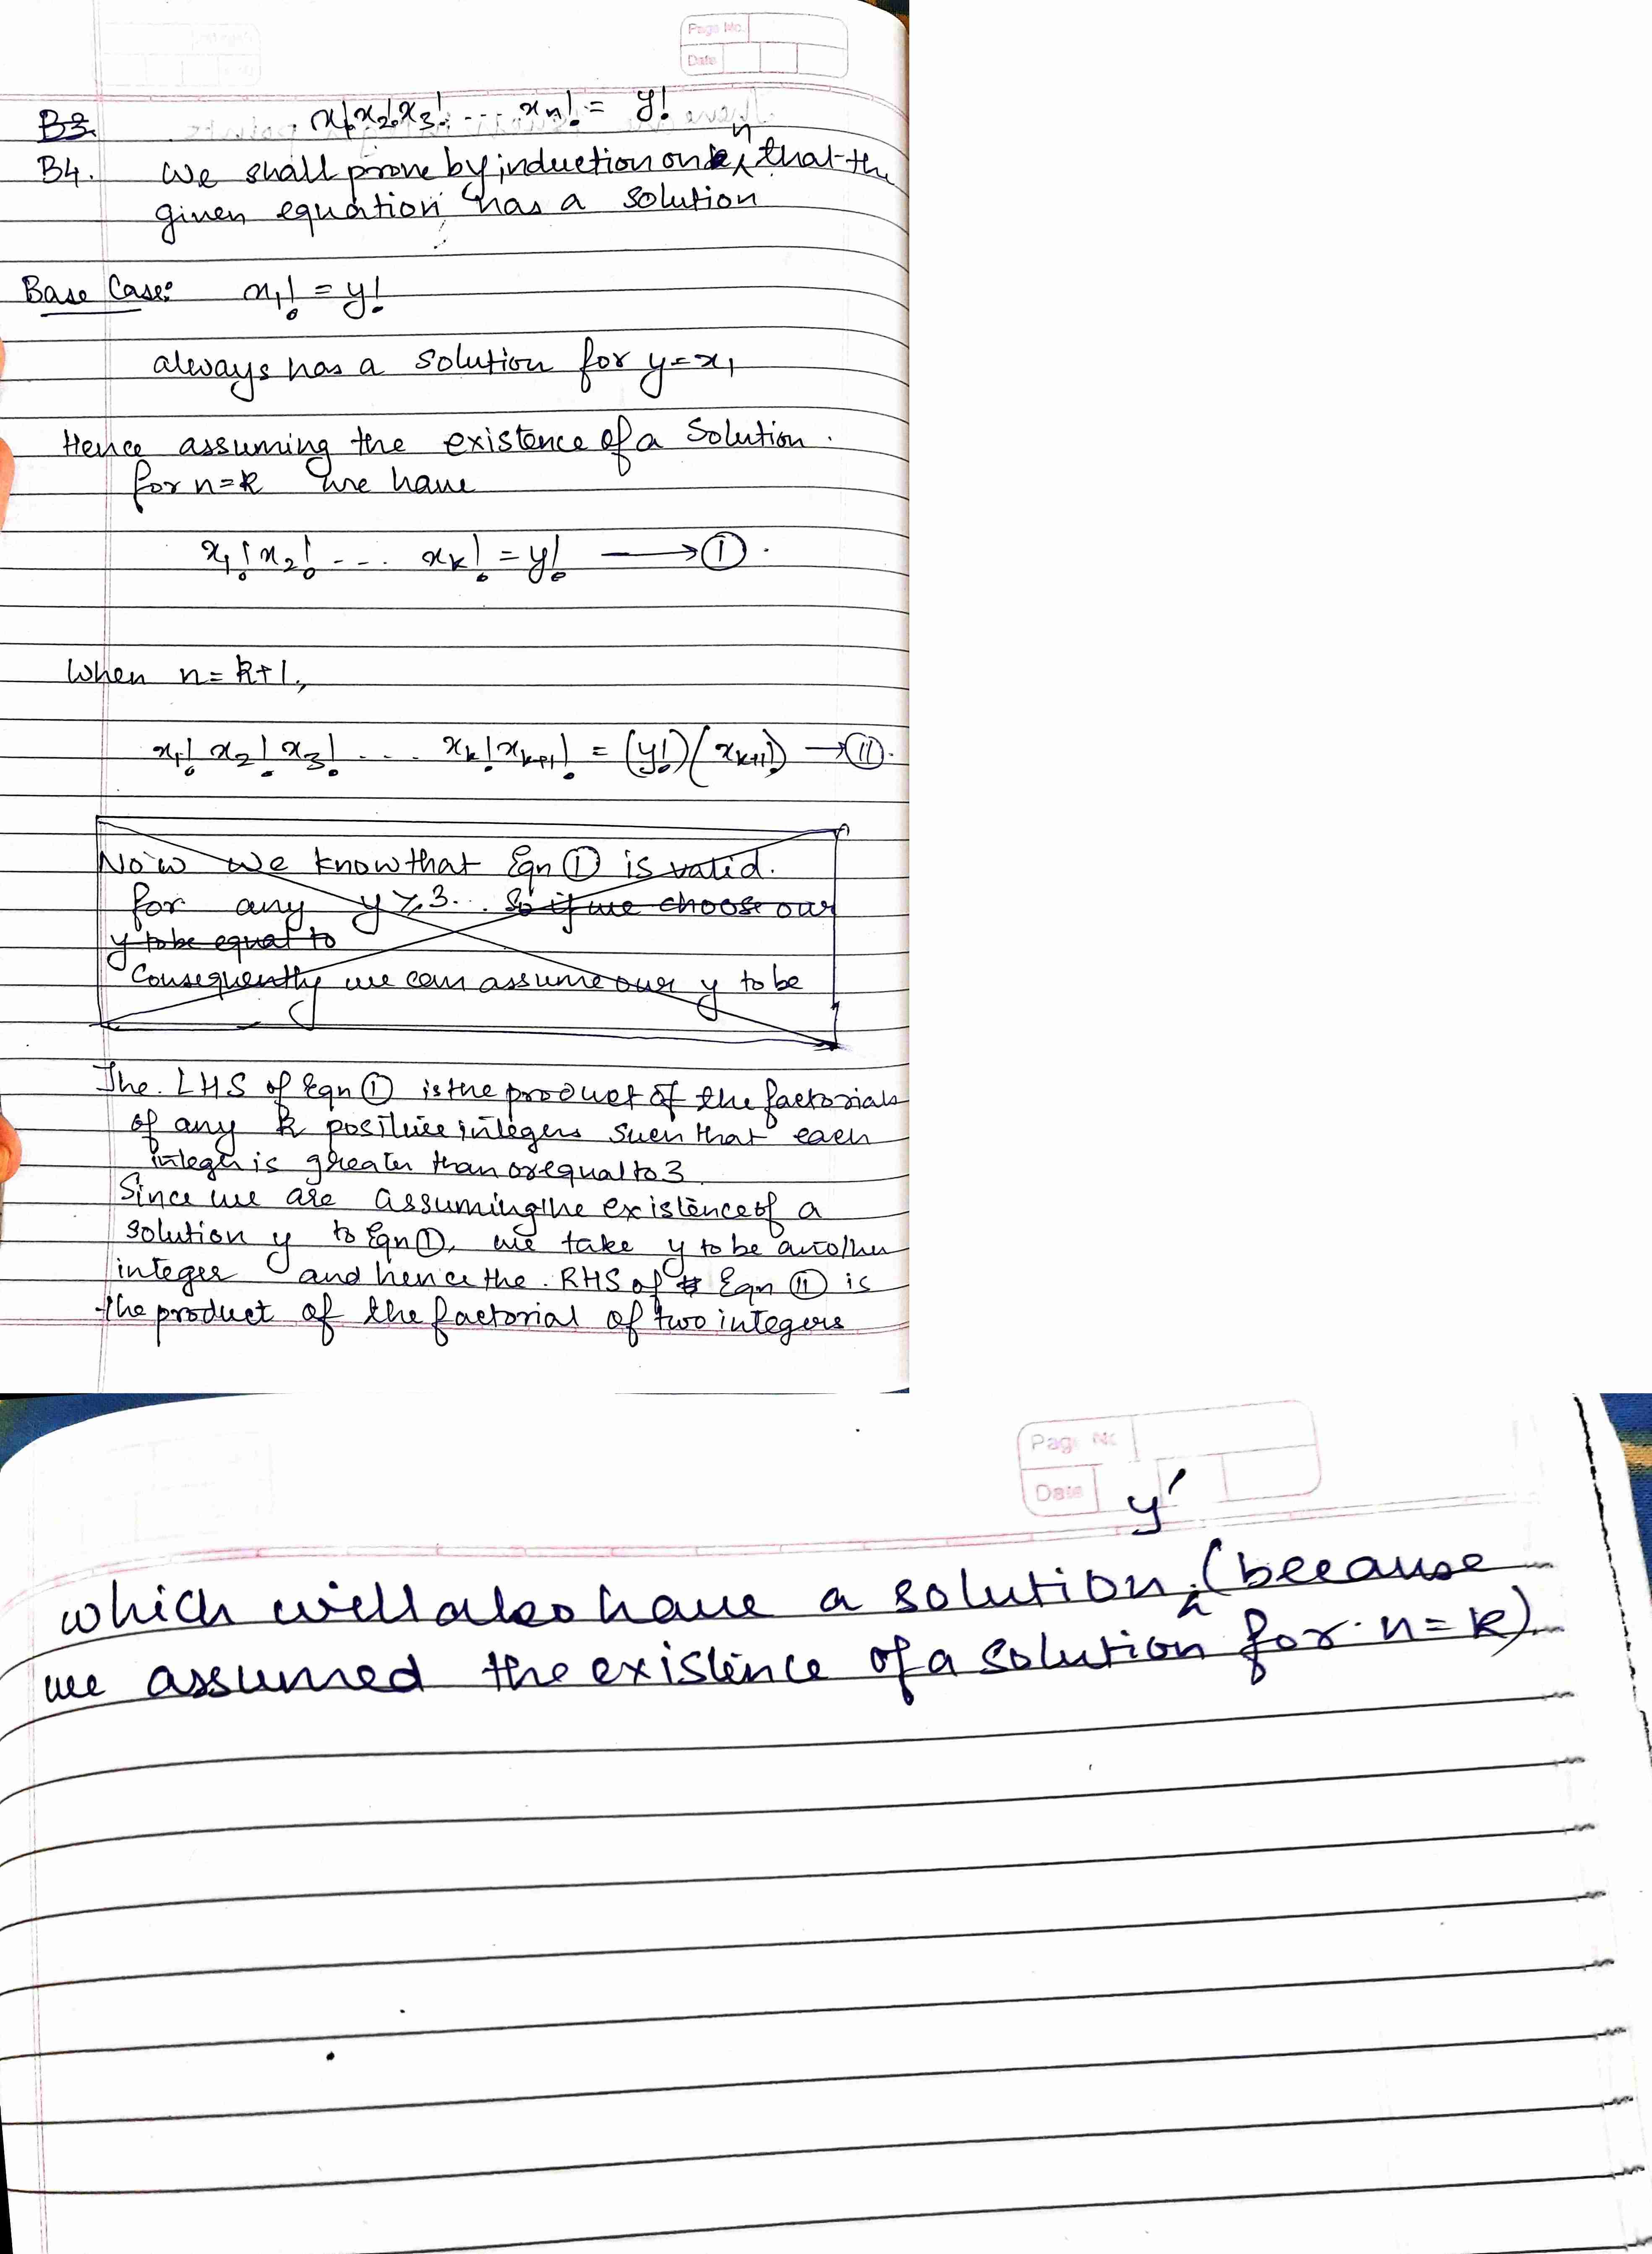 Page No.
Date
B3.
x1! x2! x3! ... xn! = y!
B4. We shall prove by induction on n that the
given equation has a solution
Base Case: x1! = y!
always has a solution for y = x1
Hence assuming the existence of a solution.
for n = k we have
x1! x2! ... xk! = y! → (I).
When n = k+1,
x1! x2! x3! ... xk! xk+1! = (y!)(xk+1!) → (II).
Now we know that Eqn (I) is valid.
for any y ≥ 3... So if we choose our
y to be equal to
Consequently we can assume our y to be
The LHS of Eqn (I) is the product of the factorials
of any k positive integers such that each
integer is greater than or equal to 3.
Since we are assuming the existence of a
solution y to Eqn (I), we take y to be another
integer and hence the RHS of Eqn (II) is
the product of the factorial of two integers
Page No
Date
which will also have a solution y' (because
we assumed the existence of a solution for n = k).